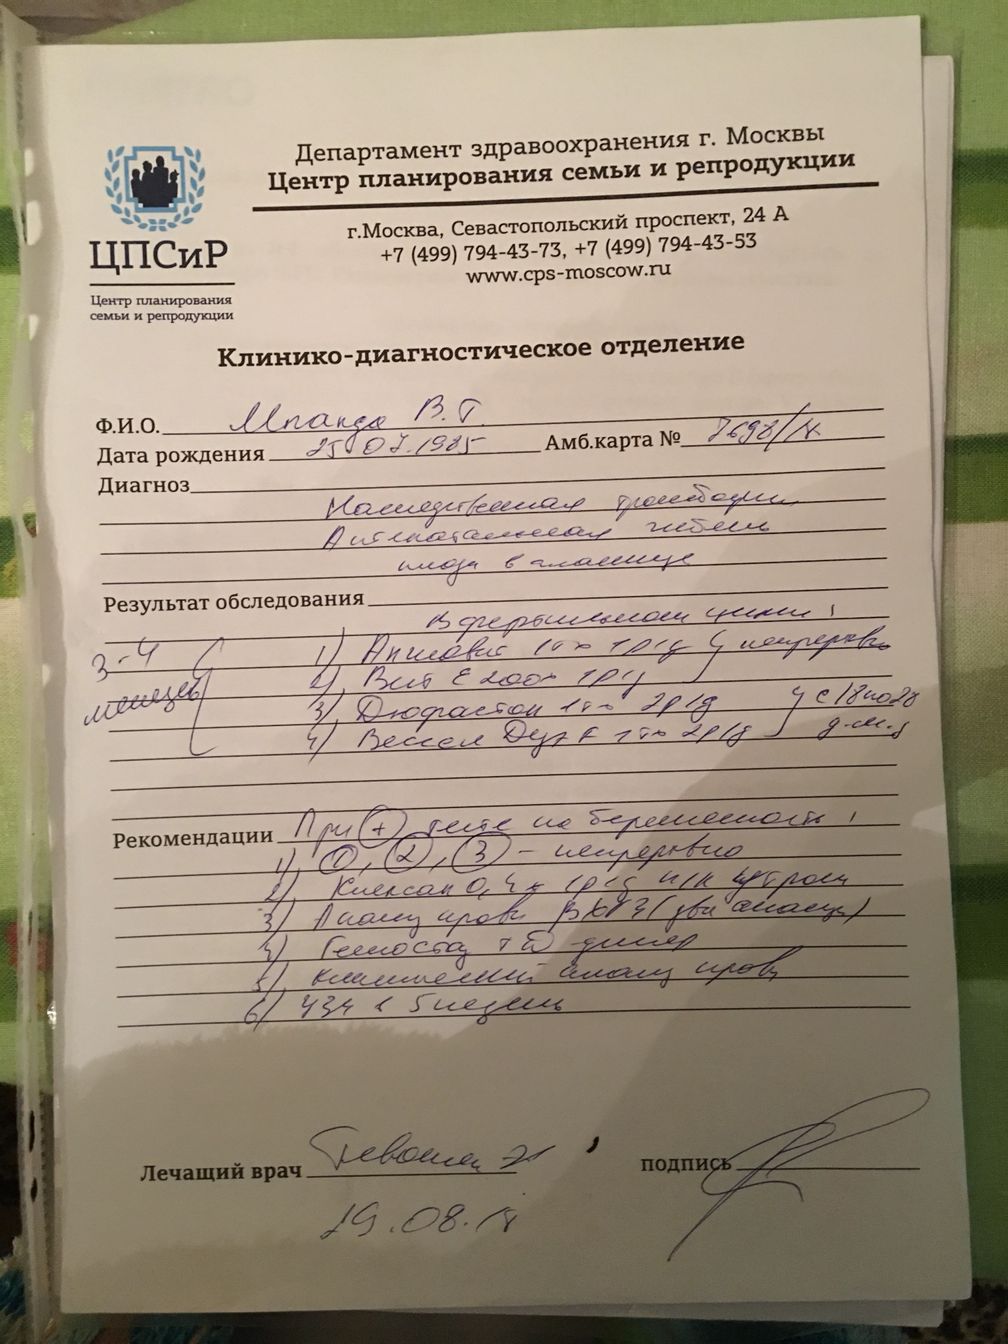 Департамент здравоохранения г. Москвы
Центр планирования семьи и репродукции
г.Москва, Севастопольский проспект, 24 А
+7 (499) 794-43-73, +7 (499) 794-43-53
www.cps-moscow.ru
ЦПСиР
Центр планирования
семьи и репродукции
Клинико-диагностическое отделение
Ф.И.О. В.Г.
Дата рождения 25.07.1985 Амб.карта №
Диагноз
Наследственная тромбофилия
Антенатальная гибель
плода в анамнезе
Результат обследования
В фертильном цикле:
3-4 месяцев
1) Ангиовит 1т x 1р/д } непрерывно
2) Вит Е 200 1р/д
3) Дюфастон 1т x 2р/д } с 18 по 28
4) Вессел Дуэ Ф 1т x 2р/д д.м.ц
Рекомендации При (+) тесте на беременность:
1) (1), (2), (3) - непрерывно
2) Клексан 0,4 x 1р/д п/к утром
3) Анализ крови β ХГЧ (два анализа)
4) Гемостаз + Д-димер
5) Клинический анализ крови
6) УЗИ в 5 недель
Лечащий врач подпись
29.08.